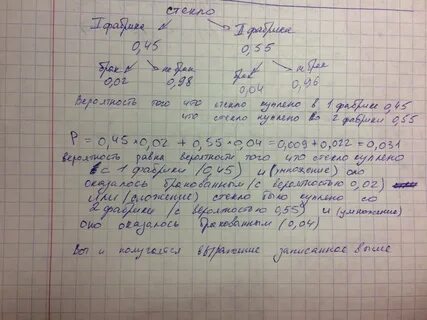 стекло
I фабрика II фабрика
0,45 0,55
брак не брак брак н брак
0,02 0,98 0,04 0,96
Вероятность того что стекло куплено в 1 фабрике 0,45
что стекло куплено во 2 фабрики 0,55
P = 0,45 * 0,02 + 0,55 * 0,04 = 0,009 + 0,022 = 0,031
вероятность равна вероятности того что стекло куплено
с 1 фабрики (0,45) и (умножение) оно
оказалось бракованным (с вероятностью 0,02)
или (сложение) стекло было куплено со
2 фабрики (с вероятностью 0,55) и (умножение)
оно оказалось бракованным (0,04)
Вот и получается выражение записанное выше